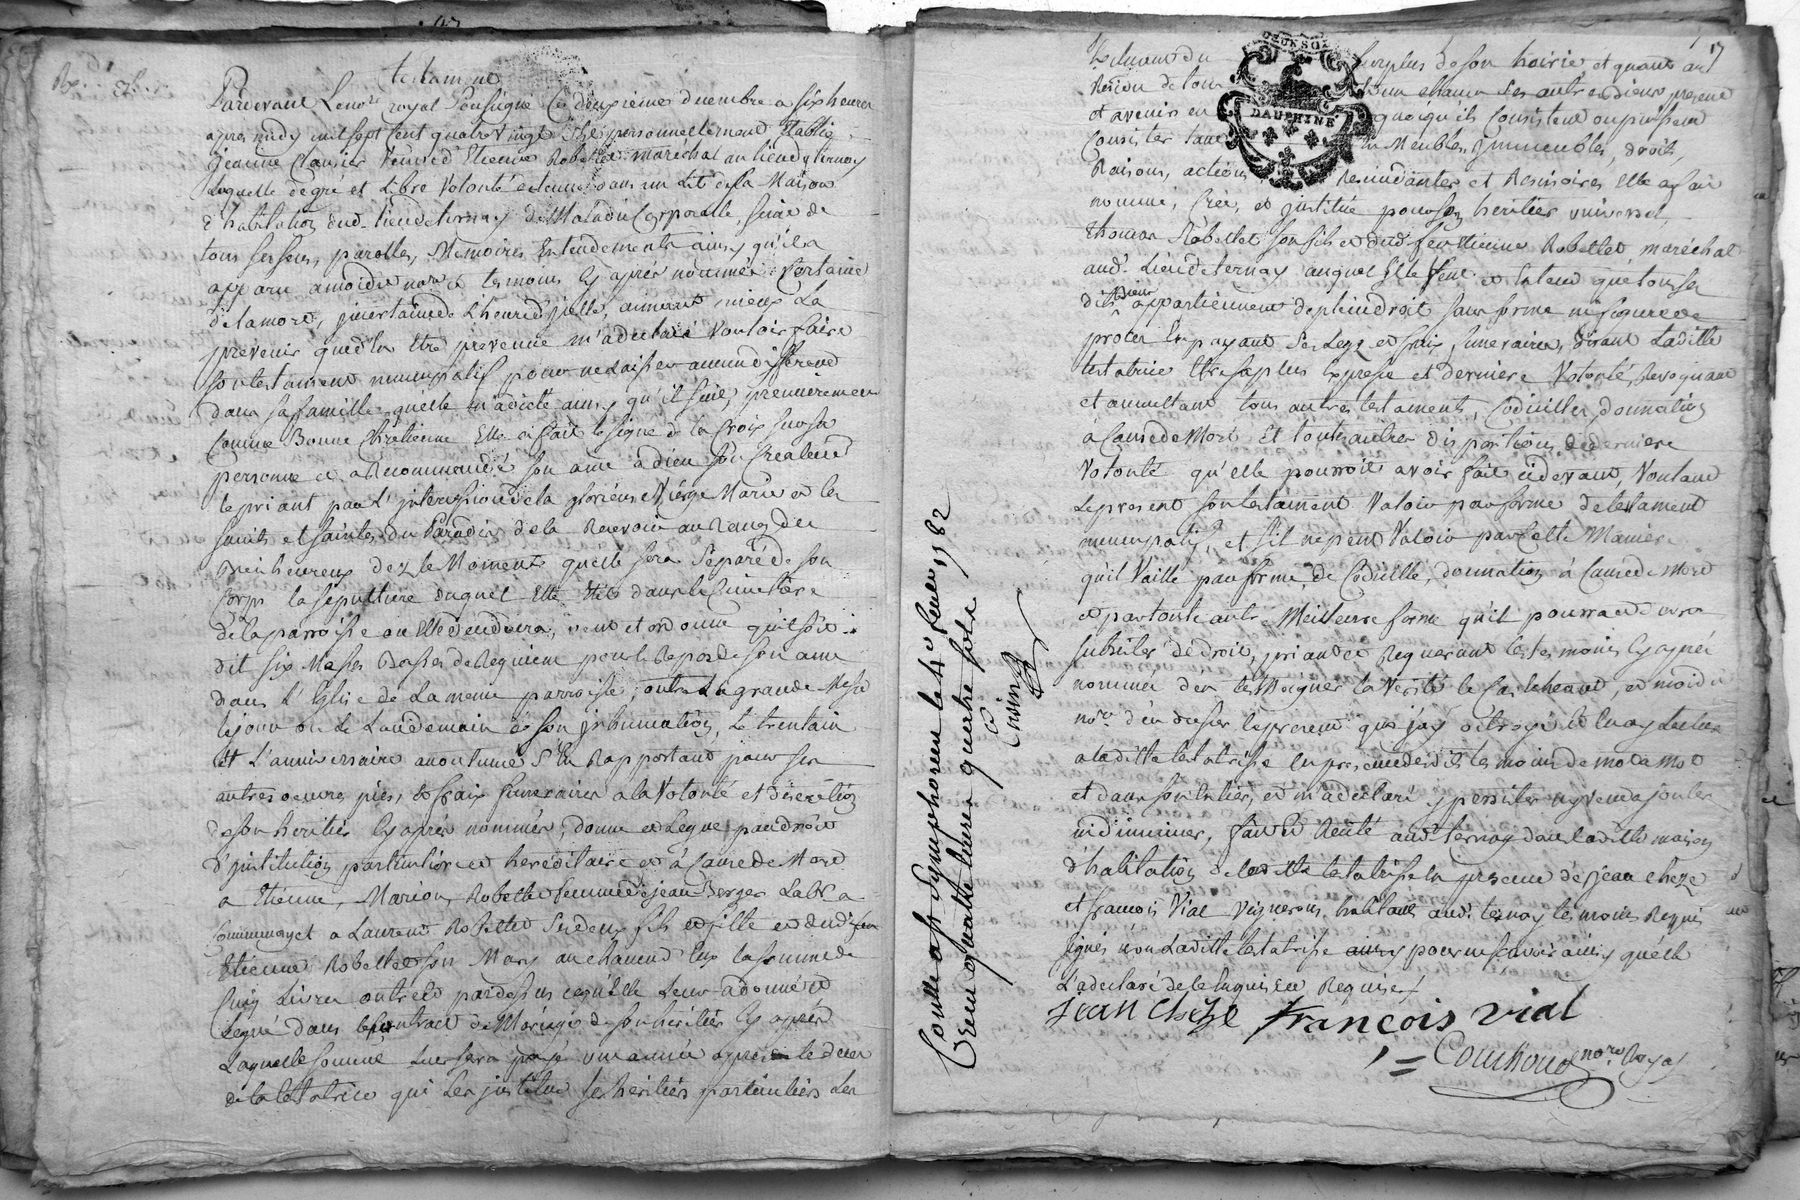 testament
Pardevant Le no.re royal soussigné Le deuxieme d
apres midy mil sept cent quatre vingt personnellement Etablie
jeanne Clavier veuve d'Etienne Robellet maréchal au lieu de ternay
Laquelle de gré et Libre Volonté detenue dans un Lit de sa Maison
d'habitation dud. lieu de ternay de Maladie Corporelle, saine de
tous ses sens, parolles, Memoires Entendements ainsy qu'il a
apparu a moidit no.re et temoins Cy après nommés: Certaine
de la mort, jncertaine de L'heure d'jcelle, aimant mieux La
prevenir que d'En Etre prevenue m'a declaré Vouloir faire
son testament nuncupatif pour ne Laisser aucun different
dans sa famille quelle m'a dicté ainsy qu'il suit, premierement
Comme Bonne Chrêtienne Elle a fait le signe de la Croix sur sa
personne et a Recommandé son ame a dieu son Createur
le priant par L'jntercession de la glorieuse Vierge Marie et les
saints et saintes du Paradis de la Recevoir au Rang des
Bienheureux dez le Moment quelle sera Separé de son
Corps la sépulture duquel Elle Elit dans le Cimetière
de la parroisse ou Elle decedera, veut et ordonne qu'il soit
dit six Messes Basses de Requiem pour le Repos de son ame
dans L'Eglise de La meme parroisse, outre La grande Messe
le jour ou le Landemain de son jnhumation, le trentain
et L'anniversaire accoutumé S'En Rapportant pour ses
autres oeuvres pies, et frais funeraires a la Volonté et discrétion
de son heritier Cy après nommés; donne et Legue par droit
d'jnstitution particulière et heréditaire et à Cause de Mort
a Etienne, Marion Robellet femme de jean Berger
Commenay et a Laurent Robellet Ses deux fils et fille et dudit feu
Etienne Robellet son Mary a chacun d'Eux la somme de
Cinq Livres outre et pardessus ce qu'Elle Leur a donné et
Legué dans le Contract de Mariage de son heritier Cy après
Laquelle somme Leur sera payé une année apres le décès
de la testatrice qui Les jnstitue ses héritiers particuliers Les
17
DAUPHINÉ
du surplus de son hoirie et quant au
Résidu de tous et un chacun ses autres biens present
et avenir en quoi qu'ils Consistent ou puissent
Consister tant en Meubles, Jmmeubles, droits,
Raisons, actions, Rescindantes et Rescisoires Elle a fait
nommé, Créé, et jnstitué pour son heritier universel,
Thomas Robellet son fils et dud. feu Etienne Robellet maréchal
aud. Lieu de ternay auquel Elle Veut et Entend que tous ses
dits biens appartiennent de plein droit sans forme ni figure de
procès En payant Ses Legs et frais funeraires, disant Laditte
testatrice Etre sa plus Expresse et derniere Volonté, Revoquant
et annullant tous autres testaments, Codicilles, donnation
à Cause de Mort Et toutes autres dispositions de derniere
Volonté qu'elle pourroit avoir fait cidevant, Voulant
Le present son testament Valoir par forme de testament
nuncupatif, et s'il ne peut Valoir par Cette Maniere
qu'il Vaille par forme de Codicille, donnation à Cause de Mort
et par toute autre Meilleure forme qu'il pourra et devra
subsister de droit, priant et Requerant les temoins Cy après
nommés d'en temoigner la Vérité le Cas échéant, et moidit
no.re d'en dresser le present que j'ay octroyé et Lu
a laditte testatrice En presence desdits temoins de mot a mot
et dans son Entier, et m'a declaré y persister n'y Vendre ajouter
ni diminuer, fait et Recité aud. ternay dans laditte maison
d'habitation de laditte testatrice En presence de sieurs jean Cheze
et francois Vial Vignerons habitants aud. ternay temoins Requis
signés non Laditte testatrice pour ne scavoir ainsy qu'Elle
L'a declaré de ce Enquise et Requise
Jean Cheze françois vial
Couchoud no.re Royal
Conllé a St Symphorien le 4e fevrier 1782
Reçu quatre livres quatre sols